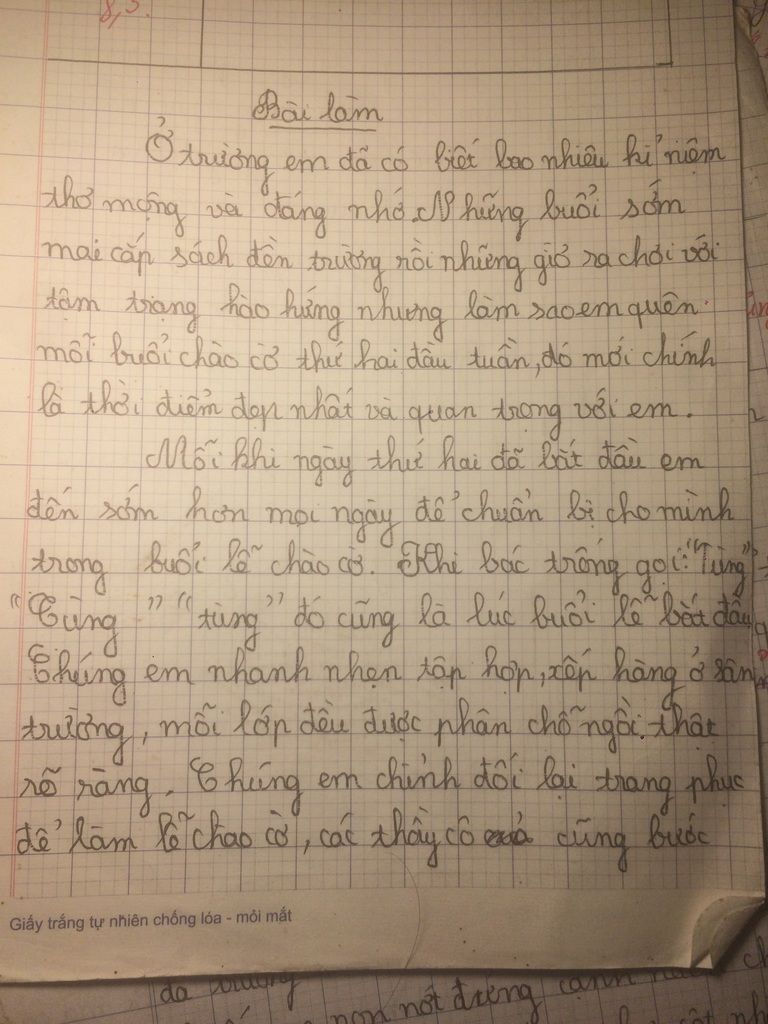 8,5
Bài làm
Ở trường em đã có biết bao nhiêu kỉ niệm
thơ mộng và đáng nhớ. Những buổi sớm
mai cắp sách đến trường rồi những giờ ra chơi với
tâm trạng hào hứng nhưng làm sao em quên
mỗi buổi chào cờ thứ hai đầu tuần, đó mới chính
là thời điểm đẹp nhất và quan trọng với em.
Mỗi khi ngày thứ hai đã bắt đầu em
đến sớm hơn mọi ngày để chuẩn bị cho mình
trong buổi lễ chào cờ. Khi bác trống gọi: "Tùng"
"Tùng" "tùng" đó cũng là lúc buổi lễ bắt đầu
Chúng em nhanh nhẹn tập hợp, xếp hàng ở sân
trường, mỗi lớp đều được phân chỗ ngồi thật
rõ ràng. Chúng em chỉnh đối lại trang phục
để làm lễ chao cờ, các thầy cô cũng bước
Giấy trắng tự nhiên chống lóa - mỏi mắt
non nớt đương cạnh